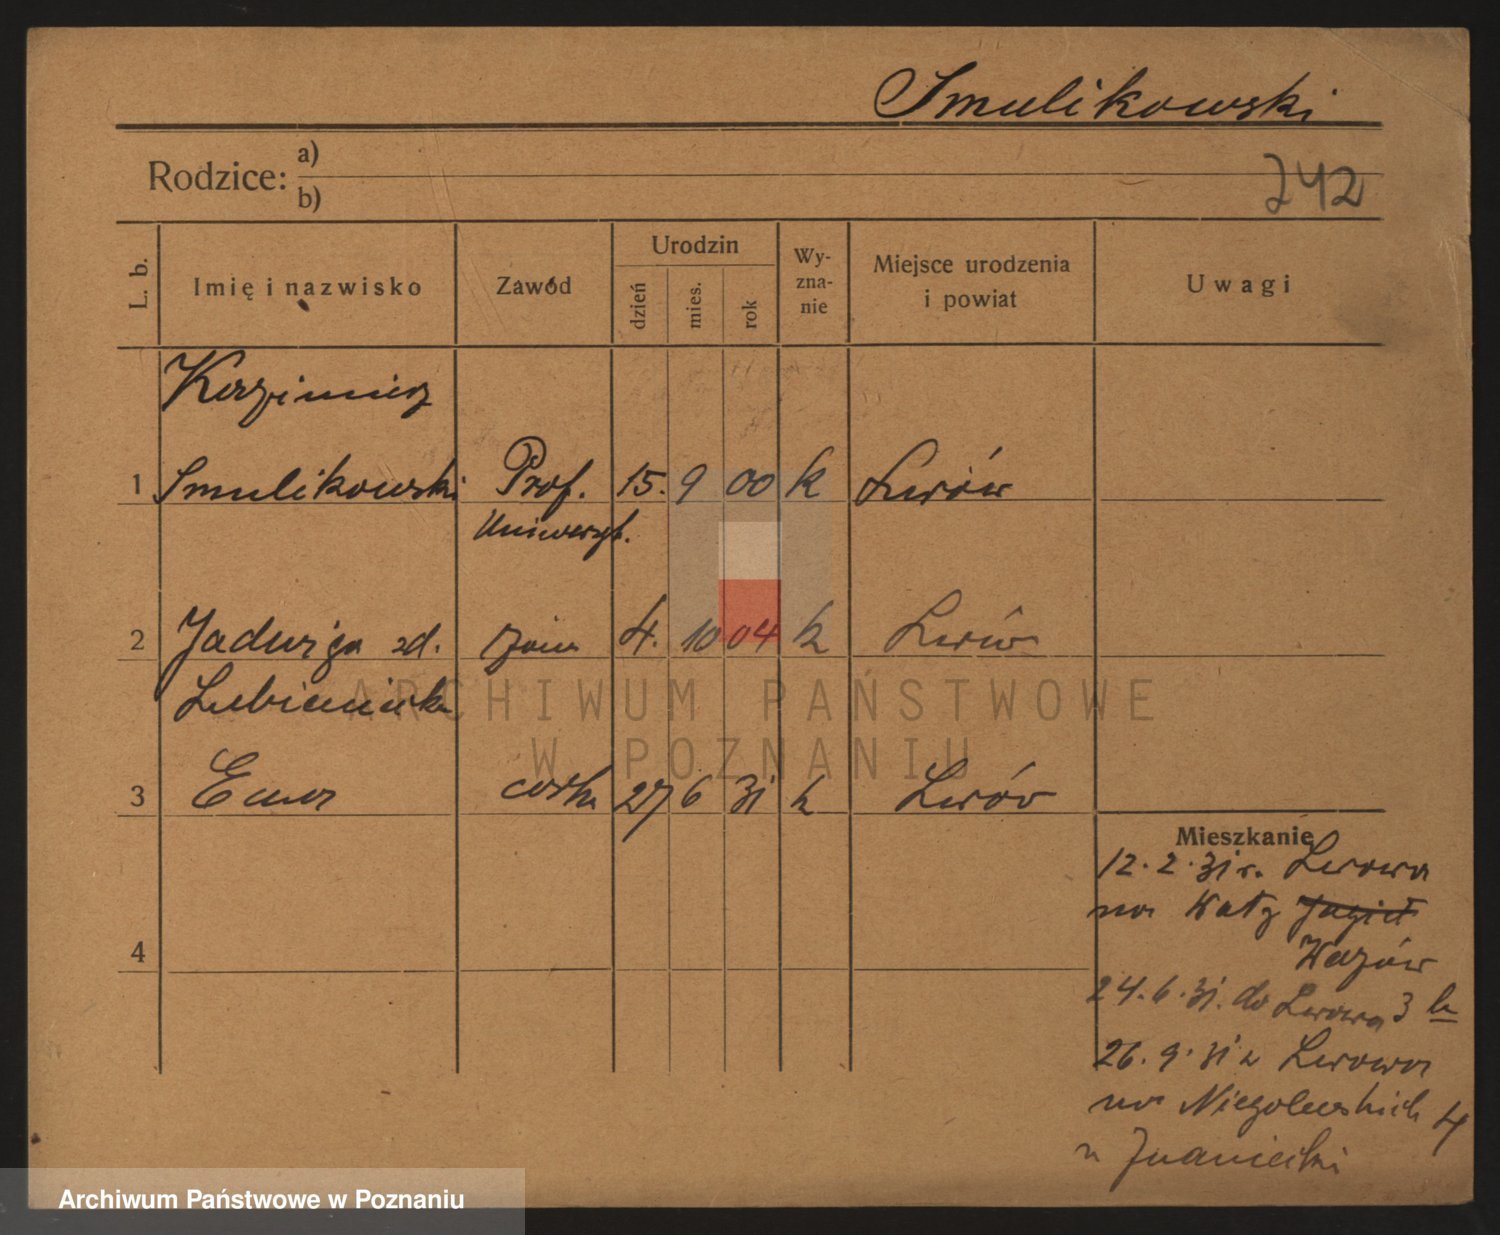 Smulikowski
Rodzice: a)
b)
742
L. b.
Imię i nazwisko
Zawód
Urodzin
dzień
mies.
rok
Wy-
zna-
nie
Miejsce urodzenia
i powiat
Uwagi
Kazimierz
1 Smulikowski Prof. 15. 9 00 k Lwów
Uniwersyt.
2 Jadwiga zd. żona 4. 10 04 k Lwów
3 Ewa córka 27 6 31 k Lwów
Mieszkanie
12. 2. 31 r. Lwowa
na
Wazów
4
24. 6. 31. do Lwowa 3
26. 9. 31 z Lwowa
na Niegolewskich 4
u Znaniecki
ARCHIWUM PAŃSTWOWE
W POZNANIU
Archiwum Państwowe w Poznaniu